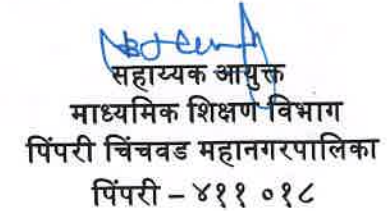 सहाय्यक आयुक्त
माध्यमिक शिक्षण विभाग
पिंपरी चिंचवड महानगरपालिका
पिंपरी – ४११ ०१८